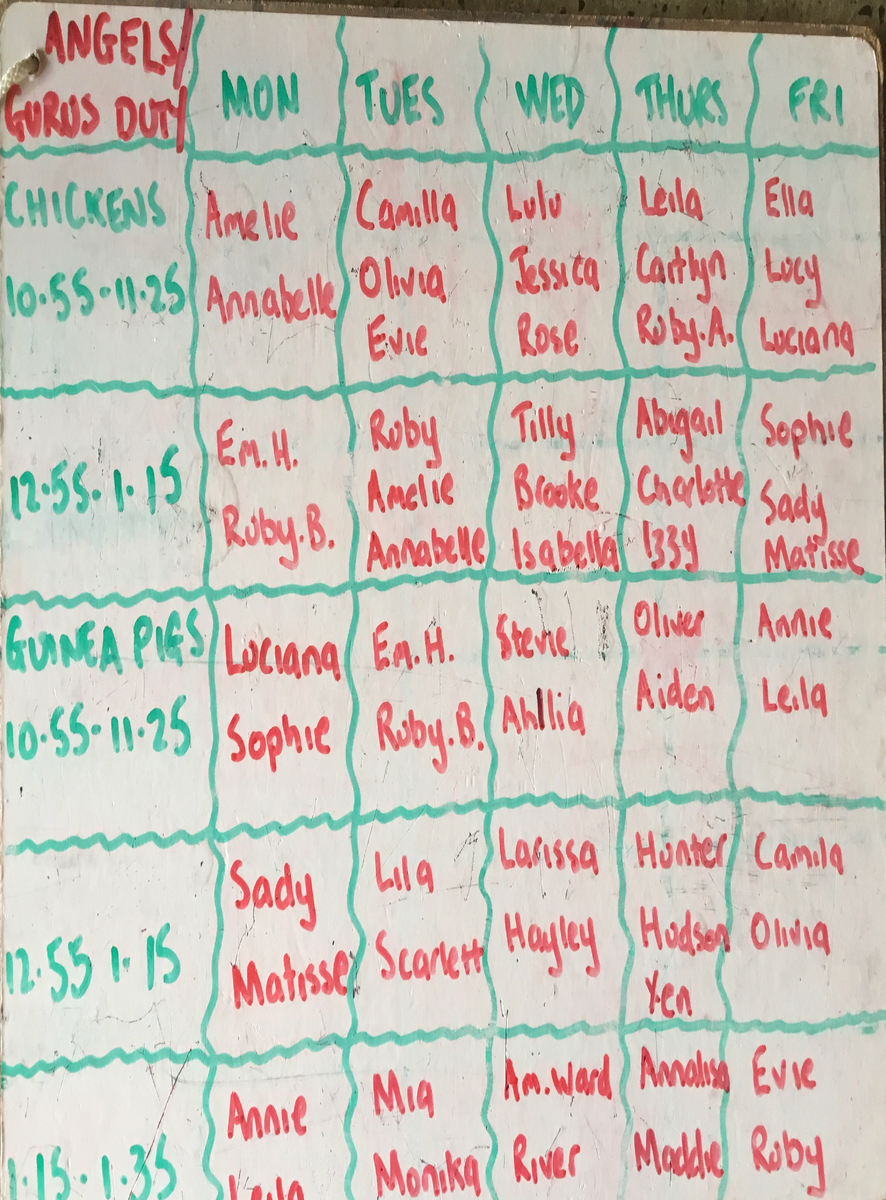 ANGELS/
GURUS DUTY MON TUES WED THURS FRI
CHICKENS Amelie Camilla Lulu Leila Ella
10.55-11.25 Annabelle Olivia Jessica Caitlyn Lucy
Evie Rose Ruby.A. Luciana
12.55-1.15 Em.H. Ruby Tilly Abigail Sophie
Ruby.B. Amelie Brooke Charlotte Sady
Annabelle Isabella Izzy Matisse
GUINEA PIGS Luciana Em.H. Stevie Oliver Annie
10.55-11.25 Sophie Ruby.B. Ahllia Aiden Leila
Sady Lila Larissa Hunter Camila
12.55 1.15 Matisse Scarlett Hayley Hudson Olivia
Yen
Annie Mia Am.Ward Annalisa Evie
1.15-1.35 Leila Monika River Maddie Ruby